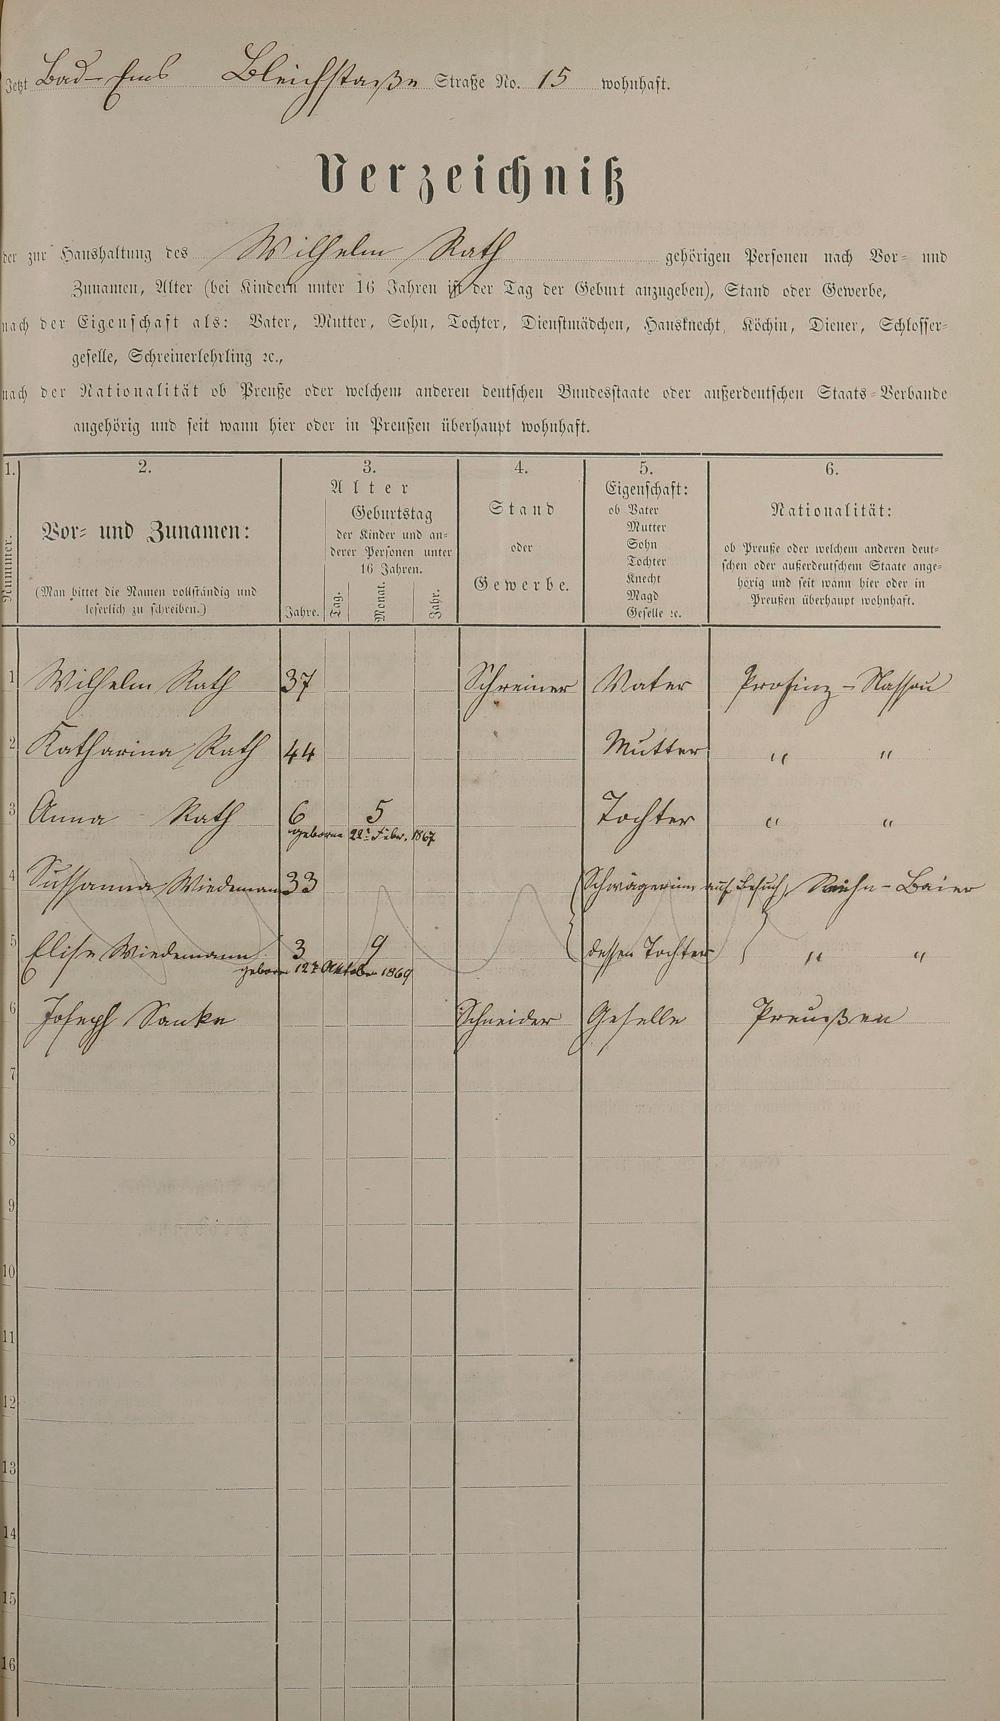 Jetzt Bad-Ems Bleichstaße Straße No. 15 wohnhaft.
Verzeichniß
der zur Haushaltung des Wilhelm Rath gehörigen Personen nach Vor- und
Zunamen, Alter (bei Kindern unter 16 Jahren ist der Tag der Geburt anzugeben), Stand oder Gewerbe,
nach der Eigenschaft als: Vater, Mutter, Sohn, Tochter, Dienstmädchen, Hausknecht, Köchin, Diener, Schlosser-
geselle, Schreinerlehrling ꝛc.,
nach der Nationalität ob Preuße oder welchem anderen deutschen Bundesstaate oder außerdeutschen Staats-Verbande
angehörig und seit wann hier oder in Preußen überhaupt wohnhaft.
1. 2. 3. 4. 5. 6.
Nummer.
Vor- und Zunamen:
(Man bittet die Namen vollständig und
leserlich zu schreiben.)
Alter
Jahre.
Geburtstag
der Kinder und an-
derer Personen unter
16 Jahren.
Tag. Monat. Jahr.
Stand
oder
Gewerbe.
Eigenschaft:
ob Vater
Mutter
Sohn
Tochter
Knecht
Magd
Geselle ꝛc.
Nationalität:
ob Preuße oder welchem anderen deut-
schen oder außerdeutschem Staate ange-
hörig und seit wann hier oder in
Preußen überhaupt wohnhaft.
1 Wilhelm Rath 37 Schreiner Vater Profinz-Nassau
2 Katharina Rath 44 Mutter " "
3 Anna Rath 6 5 Tochter " "
geboren 22t Febr. 1867
4 Sussanna Wiedemann 33 (Schwägerinn auf Besuch) -Baier
5 Elise Wiedemann 3 9 dessen Tochter " "
geboren 12t Oktober 1869
6 Joseph Sanke Schneider Geselle Preußen
7
8
9
10
11
12
13
14
15
16